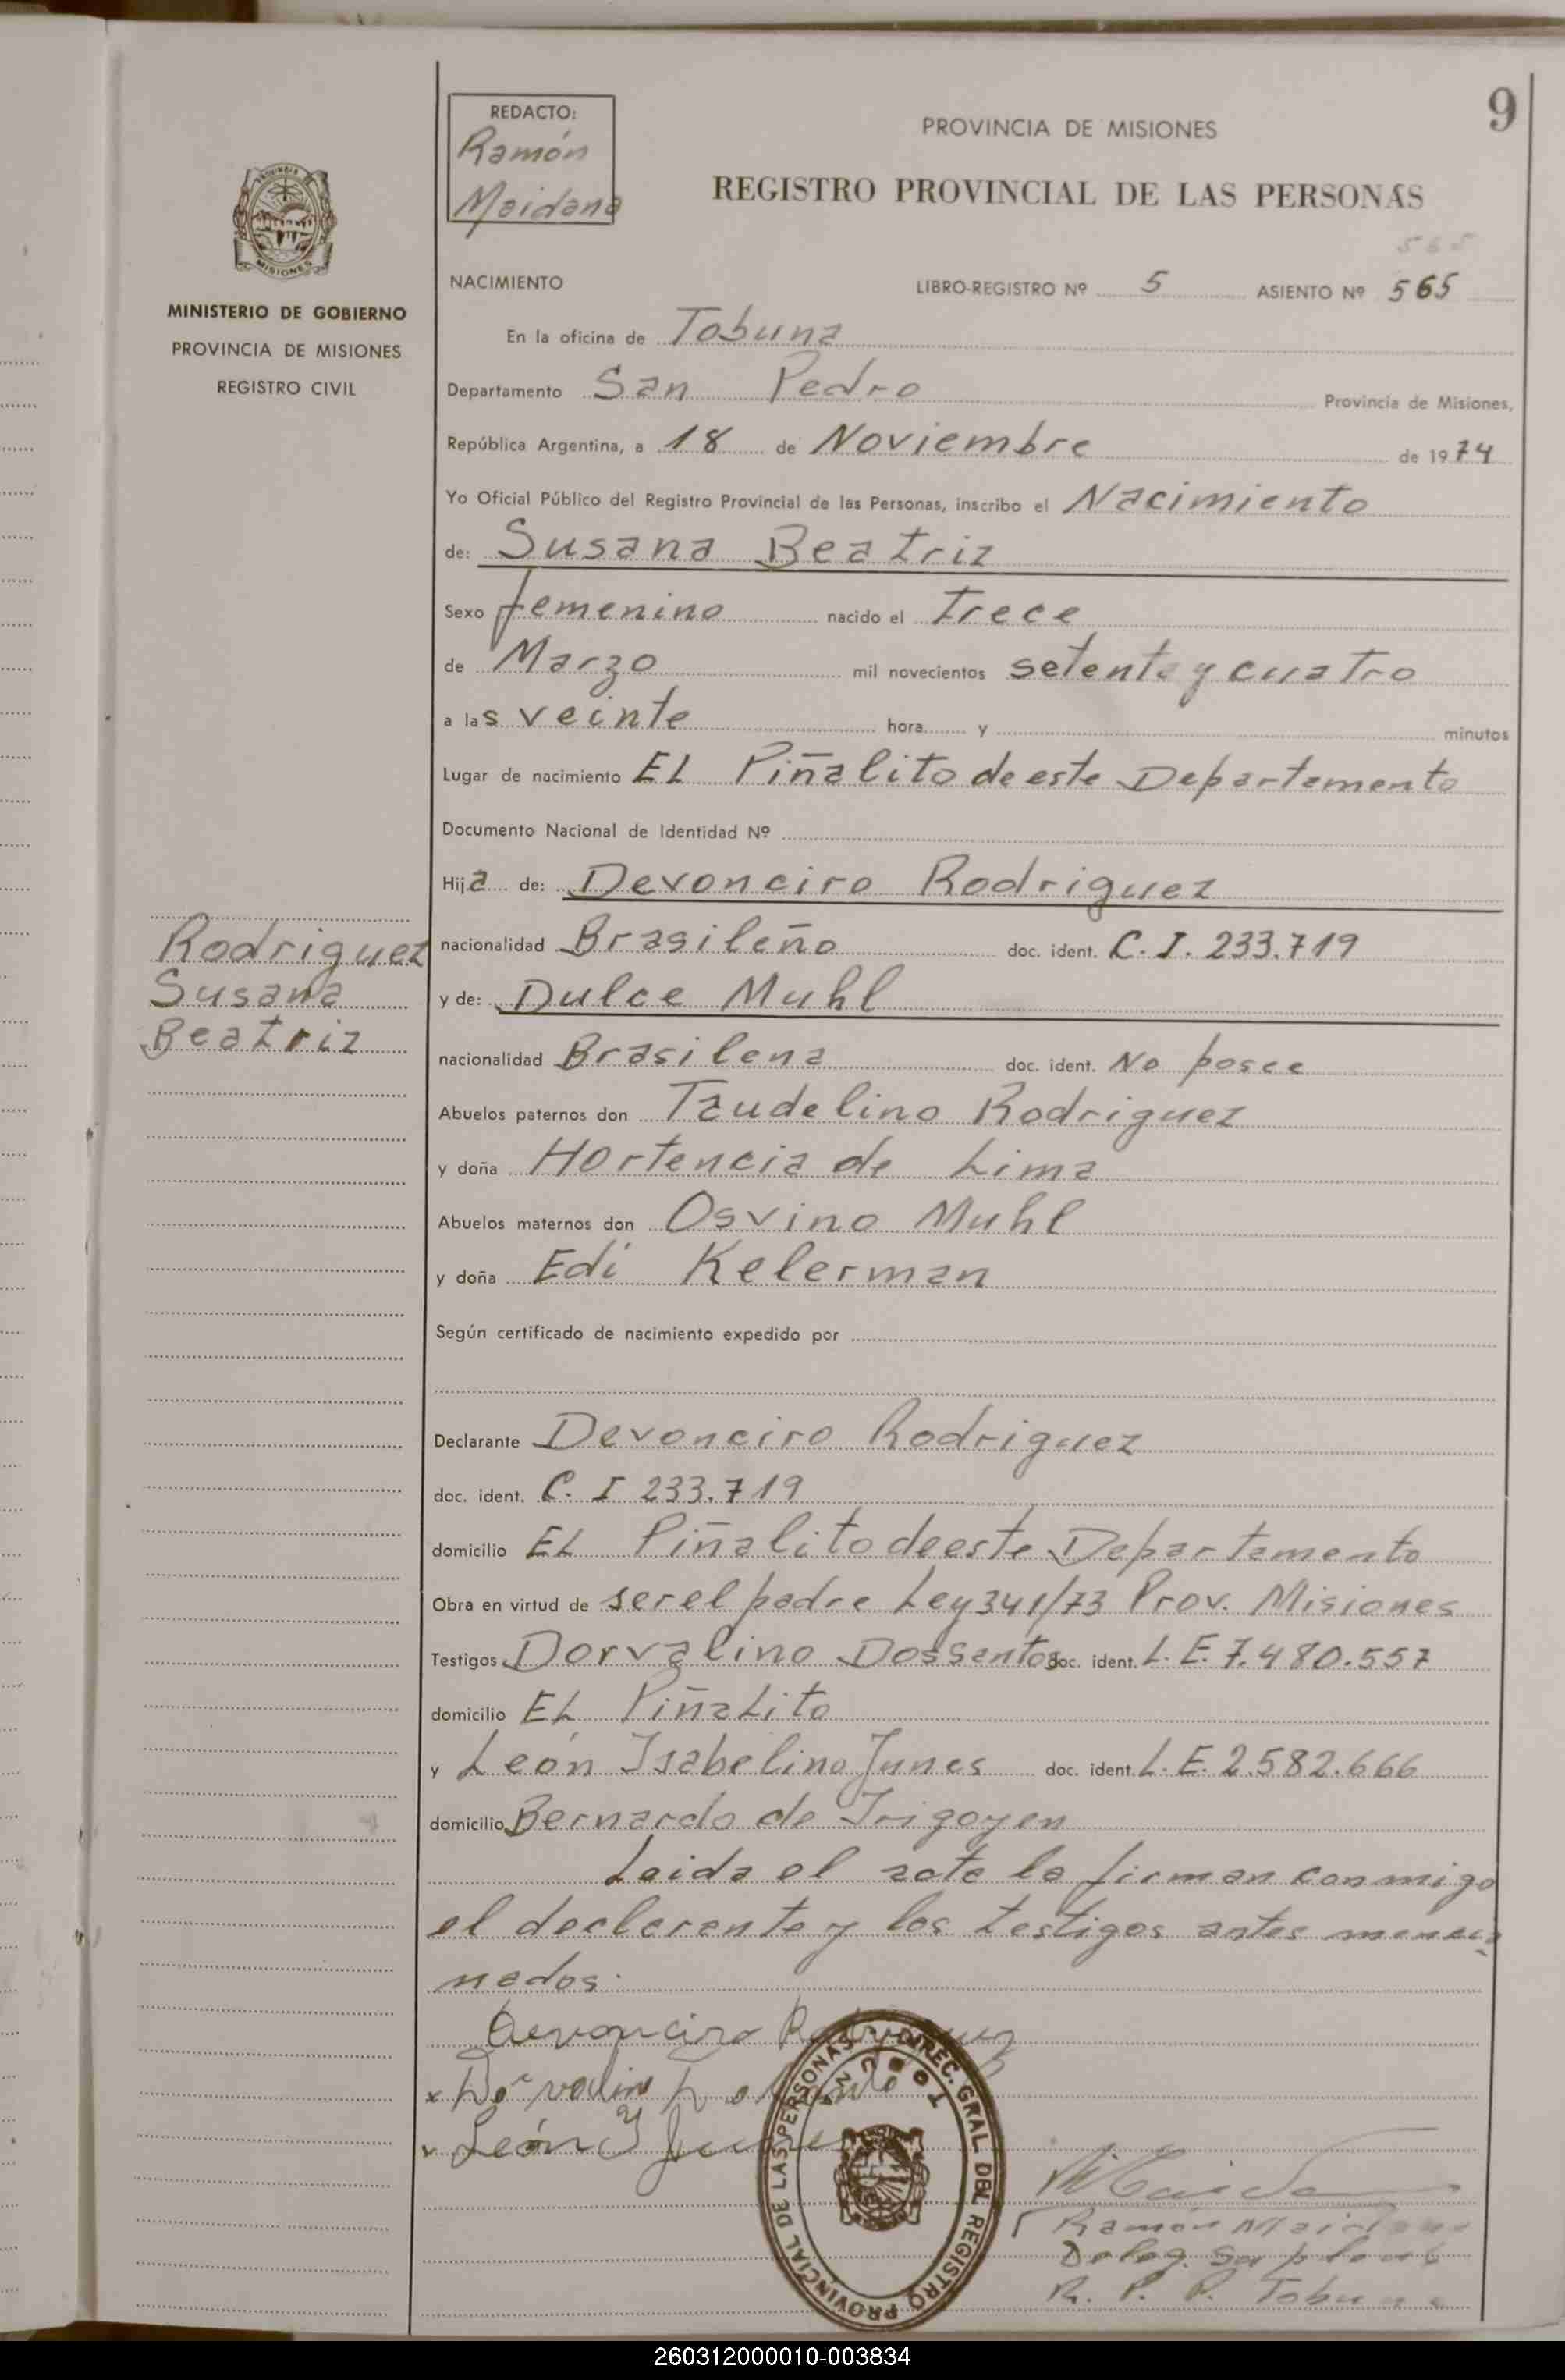 9
REDACTO:
Ramón
Maidana
PROVINCIA DE MISIONES
REGISTRO PROVINCIAL DE LAS PERSONAS
565
MINISTERIO DE GOBIERNO
PROVINCIA DE MISIONES
REGISTRO CIVIL
NACIMIENTO LIBRO-REGISTRO Nº 5 ASIENTO Nº 565
En la oficina de Tobuna
Departamento San Pedro Provincia de Misiones,
República Argentina, a 18 de Noviembre de 1974
Yo Oficial Público del Registro Provincial de las Personas, inscribo el Nacimiento
de: Susana Beatriz
Sexo femenino nacido el trece
de Marzo mil novecientos setenta y cuatro
a las veinte hora y minutos
Lugar de nacimiento EL Piñalito de este Departamento
Documento Nacional de Identidad Nº
Hija de: Devonciro Rodriguez
Rodriguez
Susana
Beatriz
nacionalidad Brasileño doc. ident. C. I. 233.719
y de: Dulce Muhl
nacionalidad Brasilena doc. ident. No posee
Abuelos paternos don Taudelino Rodriguez
y doña Hortencia de Lima
Abuelos maternos don Osvino Muhl
y doña Edi Kelerman
Según certificado de nacimiento expedido por
Declarante Devonciro Rodriguez
doc. ident. C. I 233.719
domicilio EL Piñalito de este Departamento
Obra en virtud de ser el padre Ley 341/73 Prov. Misiones
Testigos Dorvalino Dossantos doc. ident. L. E. 7.480.557
domicilio EL Piñalito
y León Isabelino Junes doc. ident. L. E. 2.582.666
domicilio Bernardo de Irigoyen
Leida el acta la firman conmigo
el declarante y los testigos antes mencio
nados.
Devonciro Rodriguez
León I Junes
DIREC. GRAL. DEL REGISTRO PROVINCIAL DE LAS PERSONAS
TOBUNA
Ramón Maidana
Deleg. Suplente
R. P. P. Tobuna
260312000010-003834